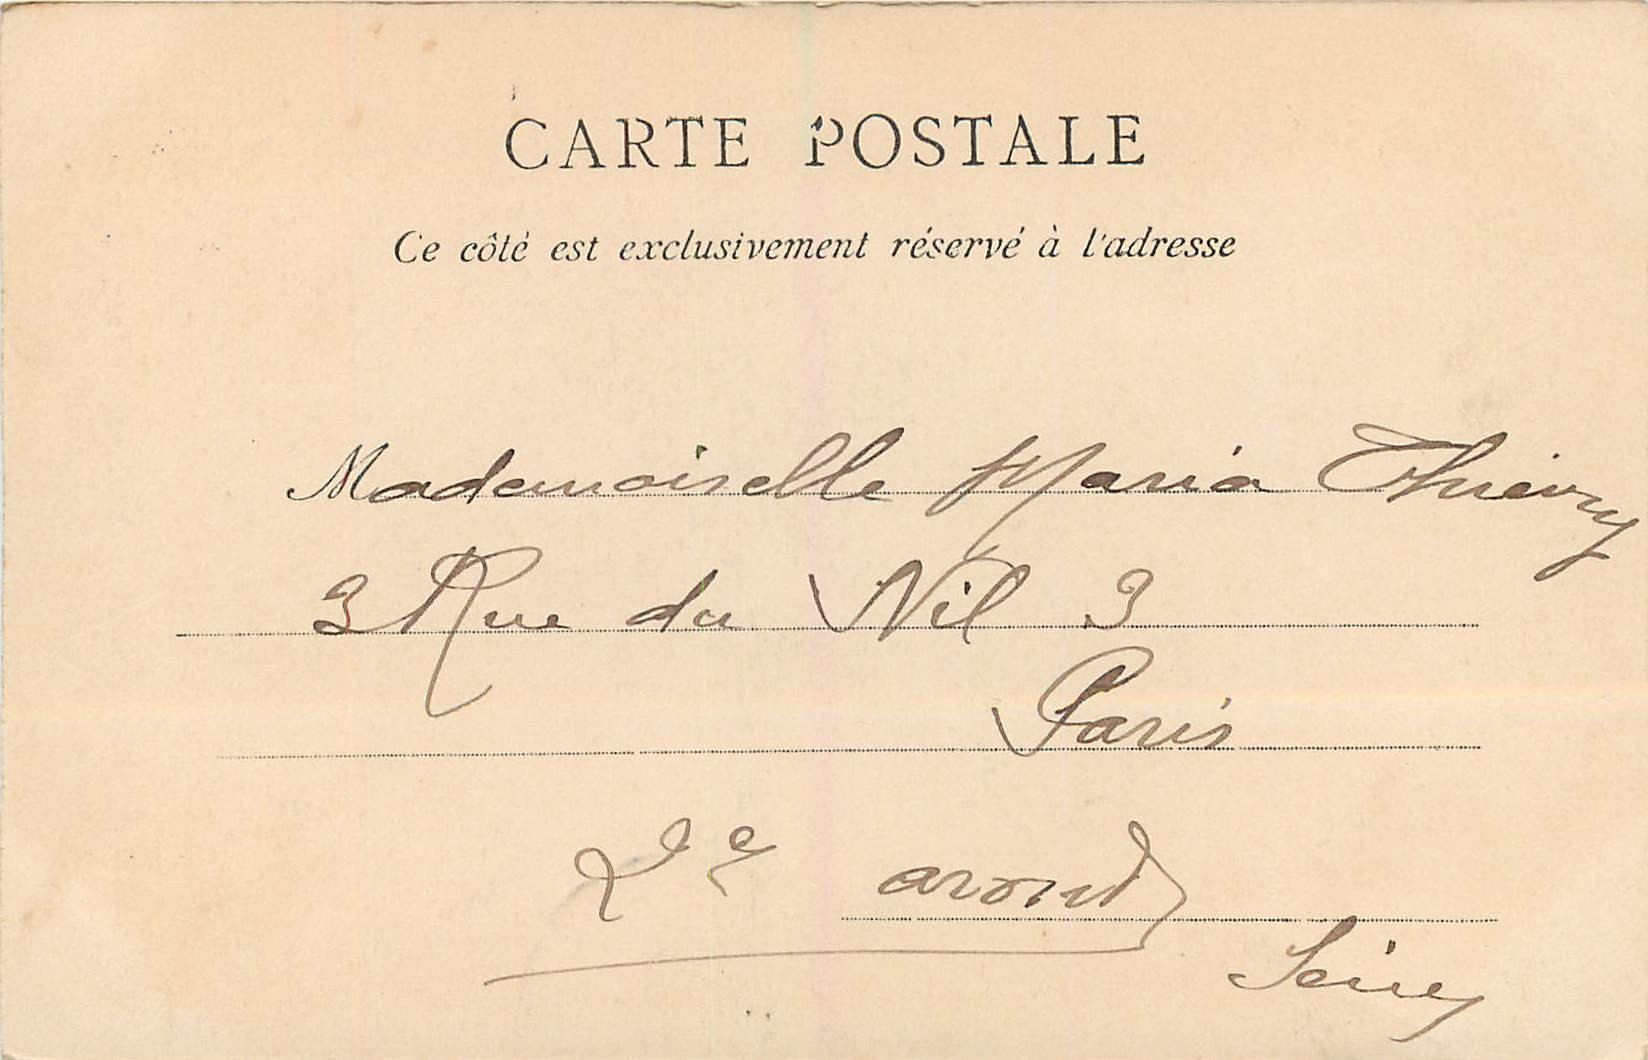 CARTE POSTALE
Ce côté est exclusivement réservé à l'adresse
Mademoiselle Maria Thiéry
3 Rue du Nil 3
Paris
2e arond
Seine